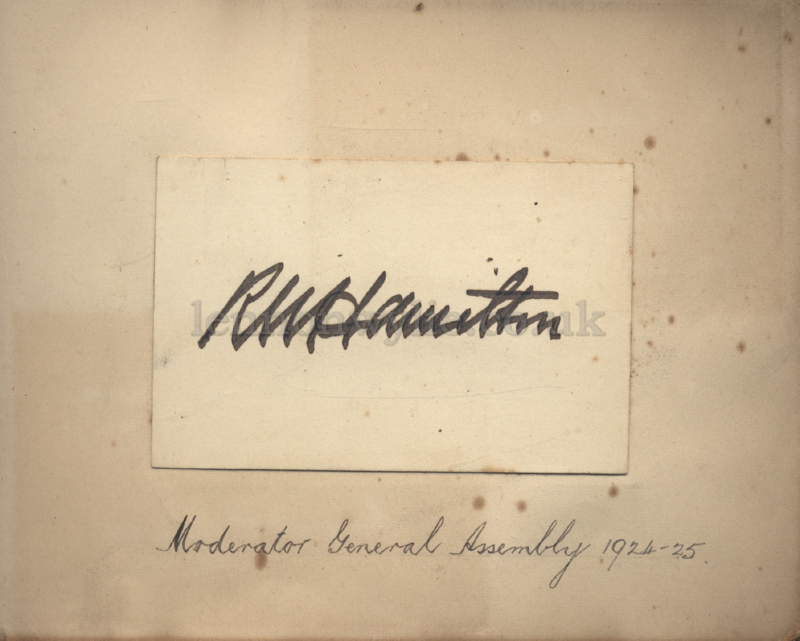 R W Hamilton
Moderator General Assembly 1924-25.